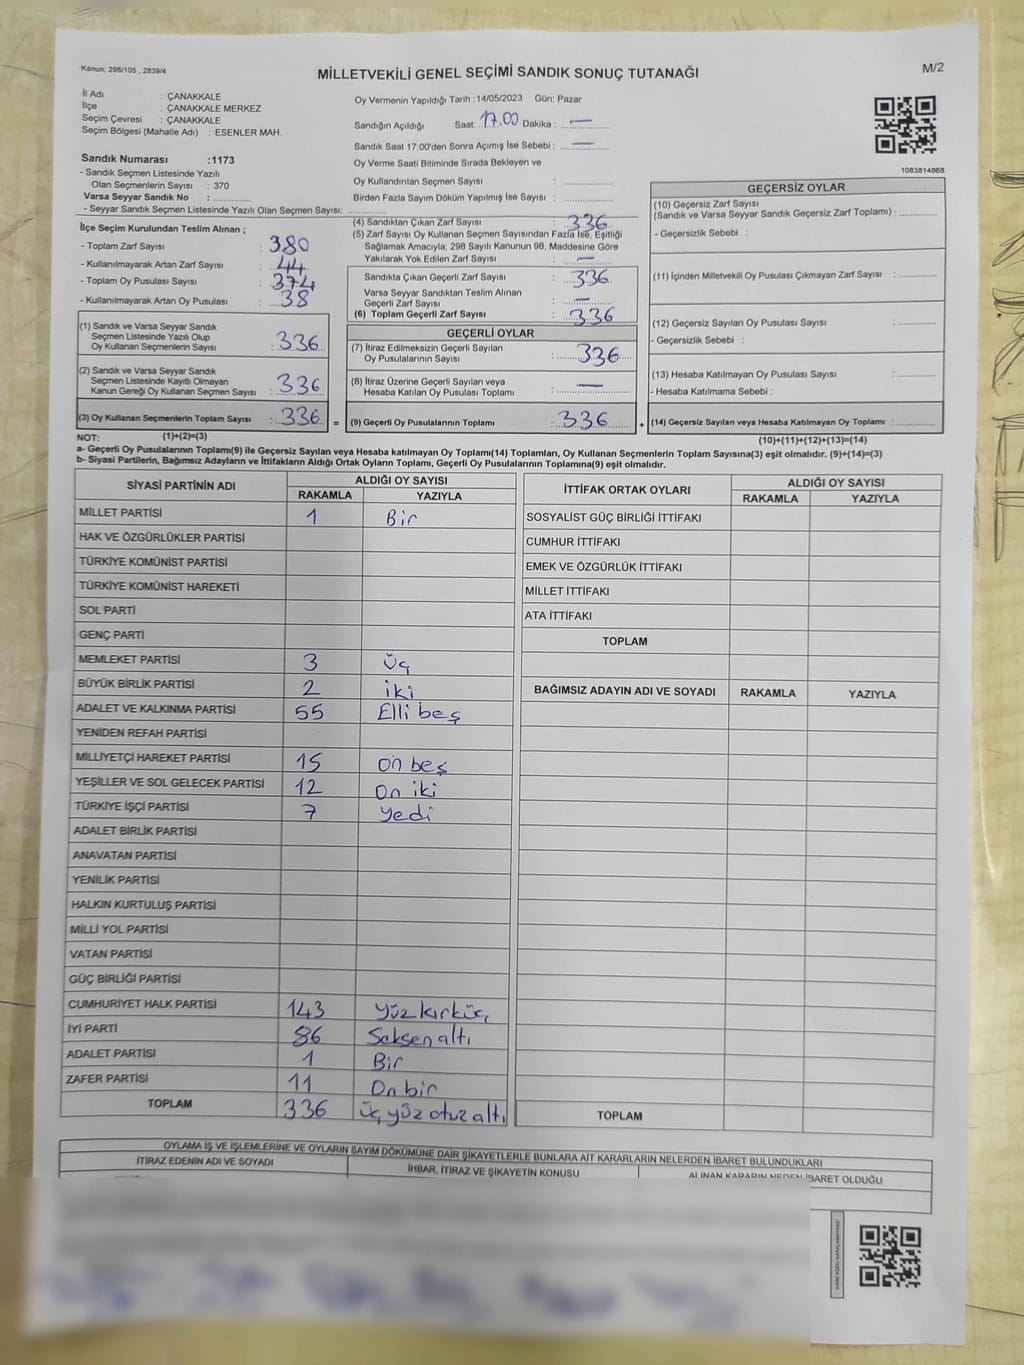 Kanun; 298/105 , 2839/4
MİLLETVEKİLİ GENEL SEÇİMİ SANDIK SONUÇ TUTANAĞI
M/2
İl Adı : ÇANAKKALE
İlçe : ÇANAKKALE MERKEZ
Seçim Çevresi : ÇANAKKALE
Seçim Bölgesi (Mahalle Adı) : ESENLER MAH.
Sandık Numarası :1173
- Sandık Seçmen Listesinde Yazılı
Olan Seçmenlerin Sayısı : 370
Varsa Seyyar Sandık No :
- Seyyar Sandık Seçmen Listesinde Yazılı Olan Seçmen Sayısı:
Oy Vermenin Yapıldığı Tarih :14/05/2023 Gün: Pazar
Sandığın Açıldığı Saat: 17.00 Dakika : —
Sandık Saat 17:00'den Sonra Açımış İse Sebebi : —
Oy Verme Saati Bitiminde Sırada Bekleyen ve
Oy Kullandırılan Seçmen Sayısı :
Birden Fazla Sayım Döküm Yapılmış İse Sayısı :
1083814868
İlçe Seçim Kurulundan Teslim Alınan ;
- Toplam Zarf Sayısı : 380
- Kullanılmayarak Artan Zarf Sayısı : 44
- Toplam Oy Pusulası Sayısı : 374
- Kullanılmayarak Artan Oy Pusulası : 38
(1) Sandık ve Varsa Seyyar Sandık
Seçmen Listesinde Yazılı Olup
Oy Kullanan Seçmenlerin Sayısı : 336
(2) Sandık ve Varsa Seyyar Sandık
Seçmen Listesinde Kayıtlı Olmayan
Kanun Gereği Oy Kullanan Seçmen Sayısı : 336
(3) Oy Kullanan Seçmenlerin Toplam Sayısı : 336
(1)+(2)=(3)
(4) Sandıktan Çıkan Zarf Sayısı : 336
(5) Zarf Sayısı Oy Kullanan Seçmen Sayısından Fazla İse, Eşitliği
Sağlamak Amacıyla; 298 Sayılı Kanunun 98. Maddesine Göre
Yakılarak Yok Edilen Zarf Sayısı : —
Sandıkta Çıkan Geçerli Zarf Sayısı : 336
Varsa Seyyar Sandıktan Teslim Alınan
Geçerli Zarf Sayısı : —
(6) Toplam Geçerli Zarf Sayısı : 336
GEÇERLİ OYLAR
(7) İtiraz Edilmeksizin Geçerli Sayılan
Oy Pusulalarının Sayısı : 336
(8) İtiraz Üzerine Geçerli Sayılan veya
Hesaba Katılan Oy Pusulası Toplamı : —
= (9) Geçerli Oy Pusulalarının Toplamı : 336
GEÇERSİZ OYLAR
(10) Geçersiz Zarf Sayısı
(Sandık ve Varsa Seyyar Sandık Geçersiz Zarf Toplamı) :
- Geçersizlik Sebebi :
(11) İçinden Milletvekili Oy Pusulası Çıkmayan Zarf Sayısı :
(12) Geçersiz Sayılan Oy Pusulası Sayısı :
- Geçersizlik Sebebi :
(13) Hesaba Katılmayan Oy Pusulası Sayısı :
- Hesaba Katılmama Sebebi :
+ (14) Geçersiz Sayılan veya Hesaba Katılmayan Oy Toplamı :
(10)+(11)+(12)+(13)=(14)
NOT:
a- Geçerli Oy Pusulalarının Toplamı(9) ile Geçersiz Sayılan veya Hesaba katılmayan Oy Toplamı(14) Toplamları, Oy Kullanan Seçmenlerin Toplam Sayısına(3) eşit olmalıdır. (9)+(14)=(3)
b- Siyasi Partilerin, Bağımsız Adayların ve İttifakların Aldığı Ortak Oyların Toplamı, Geçerli Oy Pusulalarının Toplamına(9) eşit olmalıdır.
SİYASİ PARTİNİN ADI ALDIĞI OY SAYISI
RAKAMLA YAZIYLA
MİLLET PARTİSİ 1 Bir
HAK VE ÖZGÜRLÜKLER PARTİSİ
TÜRKİYE KOMÜNİST PARTİSİ
TÜRKİYE KOMÜNİST HAREKETİ
SOL PARTİ
GENÇ PARTİ
MEMLEKET PARTİSİ 3 üç
BÜYÜK BİRLİK PARTİSİ 2 iki
ADALET VE KALKINMA PARTİSİ 55 Elli beş
YENİDEN REFAH PARTİSİ
MİLLİYETÇİ HAREKET PARTİSİ 15 on beş
YEŞİLLER VE SOL GELECEK PARTİSİ 12 On iki
TÜRKİYE İŞÇİ PARTİSİ 7 yedi
ADALET BİRLİK PARTİSİ
ANAVATAN PARTİSİ
YENİLİK PARTİSİ
HALKIN KURTULUŞ PARTİSİ
MİLLİ YOL PARTİSİ
VATAN PARTİSİ
GÜÇ BİRLİĞİ PARTİSİ
CUMHURİYET HALK PARTİSİ 143 yüzkırküç
İYİ PARTİ 86 Seksen altı
ADALET PARTİSİ 1 Bir
ZAFER PARTİSİ 11 On bir
TOPLAM 336 üç yüz otuz altı
İTTİFAK ORTAK OYLARI ALDIĞI OY SAYISI
RAKAMLA YAZIYLA
SOSYALİST GÜÇ BİRLİĞİ İTTİFAKI
CUMHUR İTTİFAKI
EMEK VE ÖZGÜRLÜK İTTİFAKI
MİLLET İTTİFAKI
ATA İTTİFAKI
TOPLAM
BAĞIMSIZ ADAYIN ADI VE SOYADI RAKAMLA YAZIYLA
TOPLAM
OYLAMA İŞ VE İŞLEMLERİNE VE OYLARIN SAYIM DÖKÜMÜNE DAİR ŞİKAYETLERLE BUNLARA AİT KARARLARIN NELERDEN İBARET BULUNDUKLARI
İTİRAZ EDENİN ADI VE SOYADI İHBAR, İTİRAZ VE ŞİKAYETİN KONUSU ALINAN KARARIN NEDEN İBARET OLDUĞU